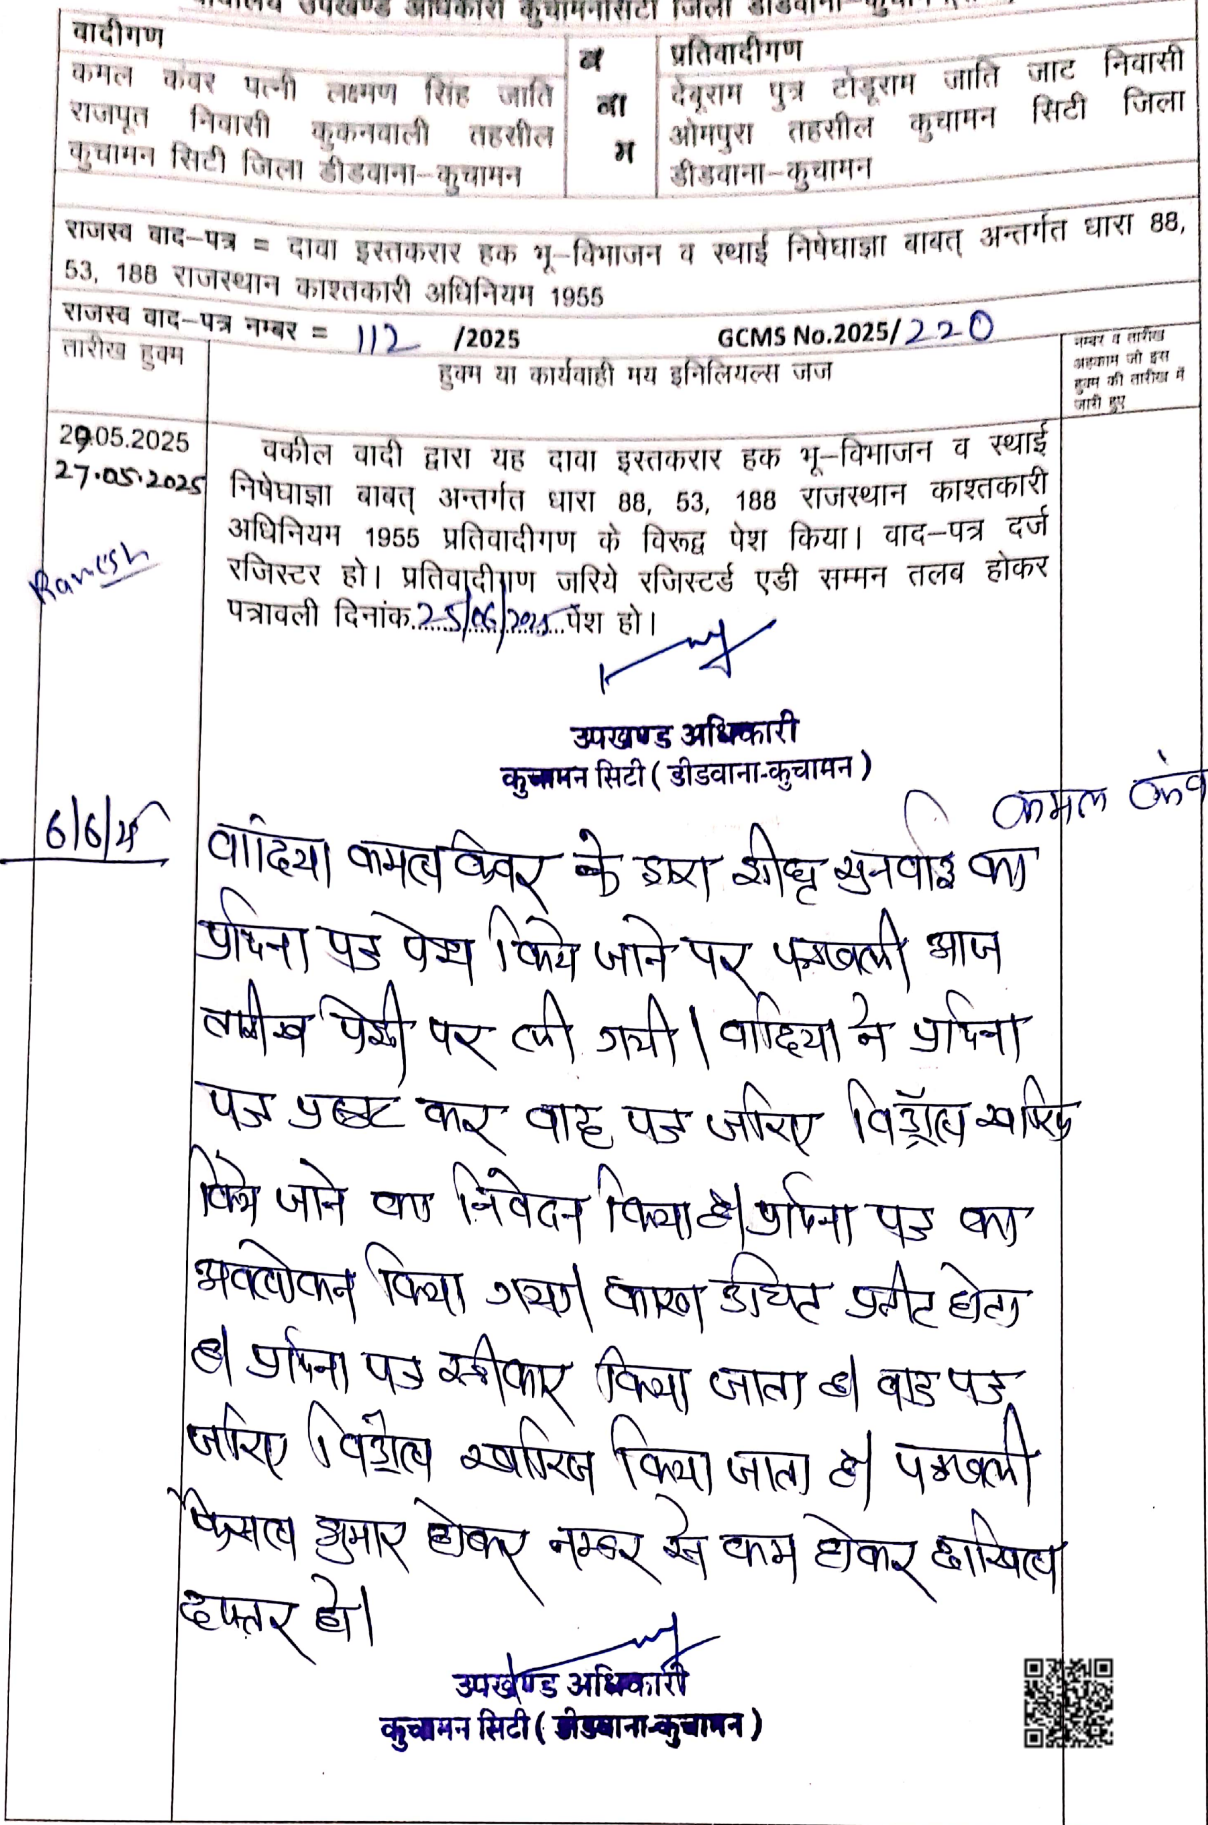 कार्यालय उपखण्ड अधिकारी कुचामनसिटी जिला डीडवाना–कुचामन
वादीगण
ब
ना
म
प्रतिवादीगण
कमल कंवर पत्नी लक्ष्मण सिंह जाति
राजपूत निवासी कुकनवाली तहसील
कुचामन सिटी जिला डीडवाना–कुचामन
देवूराम पुत्र टोडूराम जाति जाट निवासी
ओमपुरा तहसील कुचामन सिटी जिला
डीडवाना–कुचामन
राजस्व वाद–पत्र = दावा इस्तकरार हक भू–विभाजन व स्थाई निषेघाज्ञा बाबत् अन्तर्गत धारा 88,
53, 188 राजस्थान काश्तकारी अधिनियम 1955
राजस्व वाद–पत्र नम्बर = 112 /2025 GCMS No.2025/220
तारीख हुक्म
हुक्म या कार्यवाही मय इनिलियल्स जज
नम्बर व तारीख
अहकाम जो इस
हुक्म की तारीख में
जारी हुए
29.05.2025
27.05.2025
Ramesh
वकील वादी द्वारा यह दावा इस्तकरार हक भू–विभाजन व स्थाई
निषेघाज्ञा बाबत् अन्तर्गत धारा 88, 53, 188 राजस्थान काश्तकारी
अधिनियम 1955 प्रतिवादीगण के विरूद्व पेश किया। वाद–पत्र दर्ज
रजिस्टर हो। प्रतिवादीगण जरिये रजिस्टर्ड एडी सम्मन तलब होकर
पत्रावली दिनांक 25/06/2025 पेश हो।
उपखण्ड अधिकारी
कुचामन सिटी ( डीडवाना-कुचामन )
कमल कंव
6/6/25
वादिया कमल कंवर के द्वारा शीघ्र सुनवाई का
प्रार्थना पत्र पेश किये जाने पर पत्रावली आज
तारीख पेशी पर ली गयी। वादिया ने प्रार्थना
पत्र प्रस्तुत कर वाद पत्र जरिए विड्रॉल खारिज
किये जाने का निवेदन किया है। प्रार्थना पत्र का
अवलोकन किया गया। कारण उचित प्रतीत होता
है। प्रार्थना पत्र स्वीकार किया जाता है। वाद पत्र
जरिए विड्रॉल खारिज किया जाता है। पत्रावली
फैसल शुमार होकर नम्बर से कम होकर दाखिल
दफ्तर हो।
उपखण्ड अधिकारी
कुचामन सिटी ( डीडवाना-कुचामन )